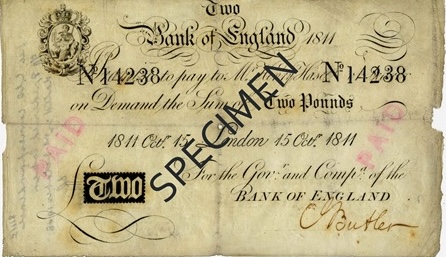 Two
Bank of England 1811
No 14238 No 14238
to pay to Mr
on Demand the Sum Two Pounds
1811 Octr. 15 London 15 Octr. 1811
£ Two For the Govr. and Compa. of the
BANK OF ENGLAND
C Butler
SPECIMEN
PAID
PAID